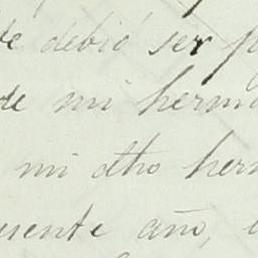 te debió ser p
de mi herma
mi dho her
esente año,